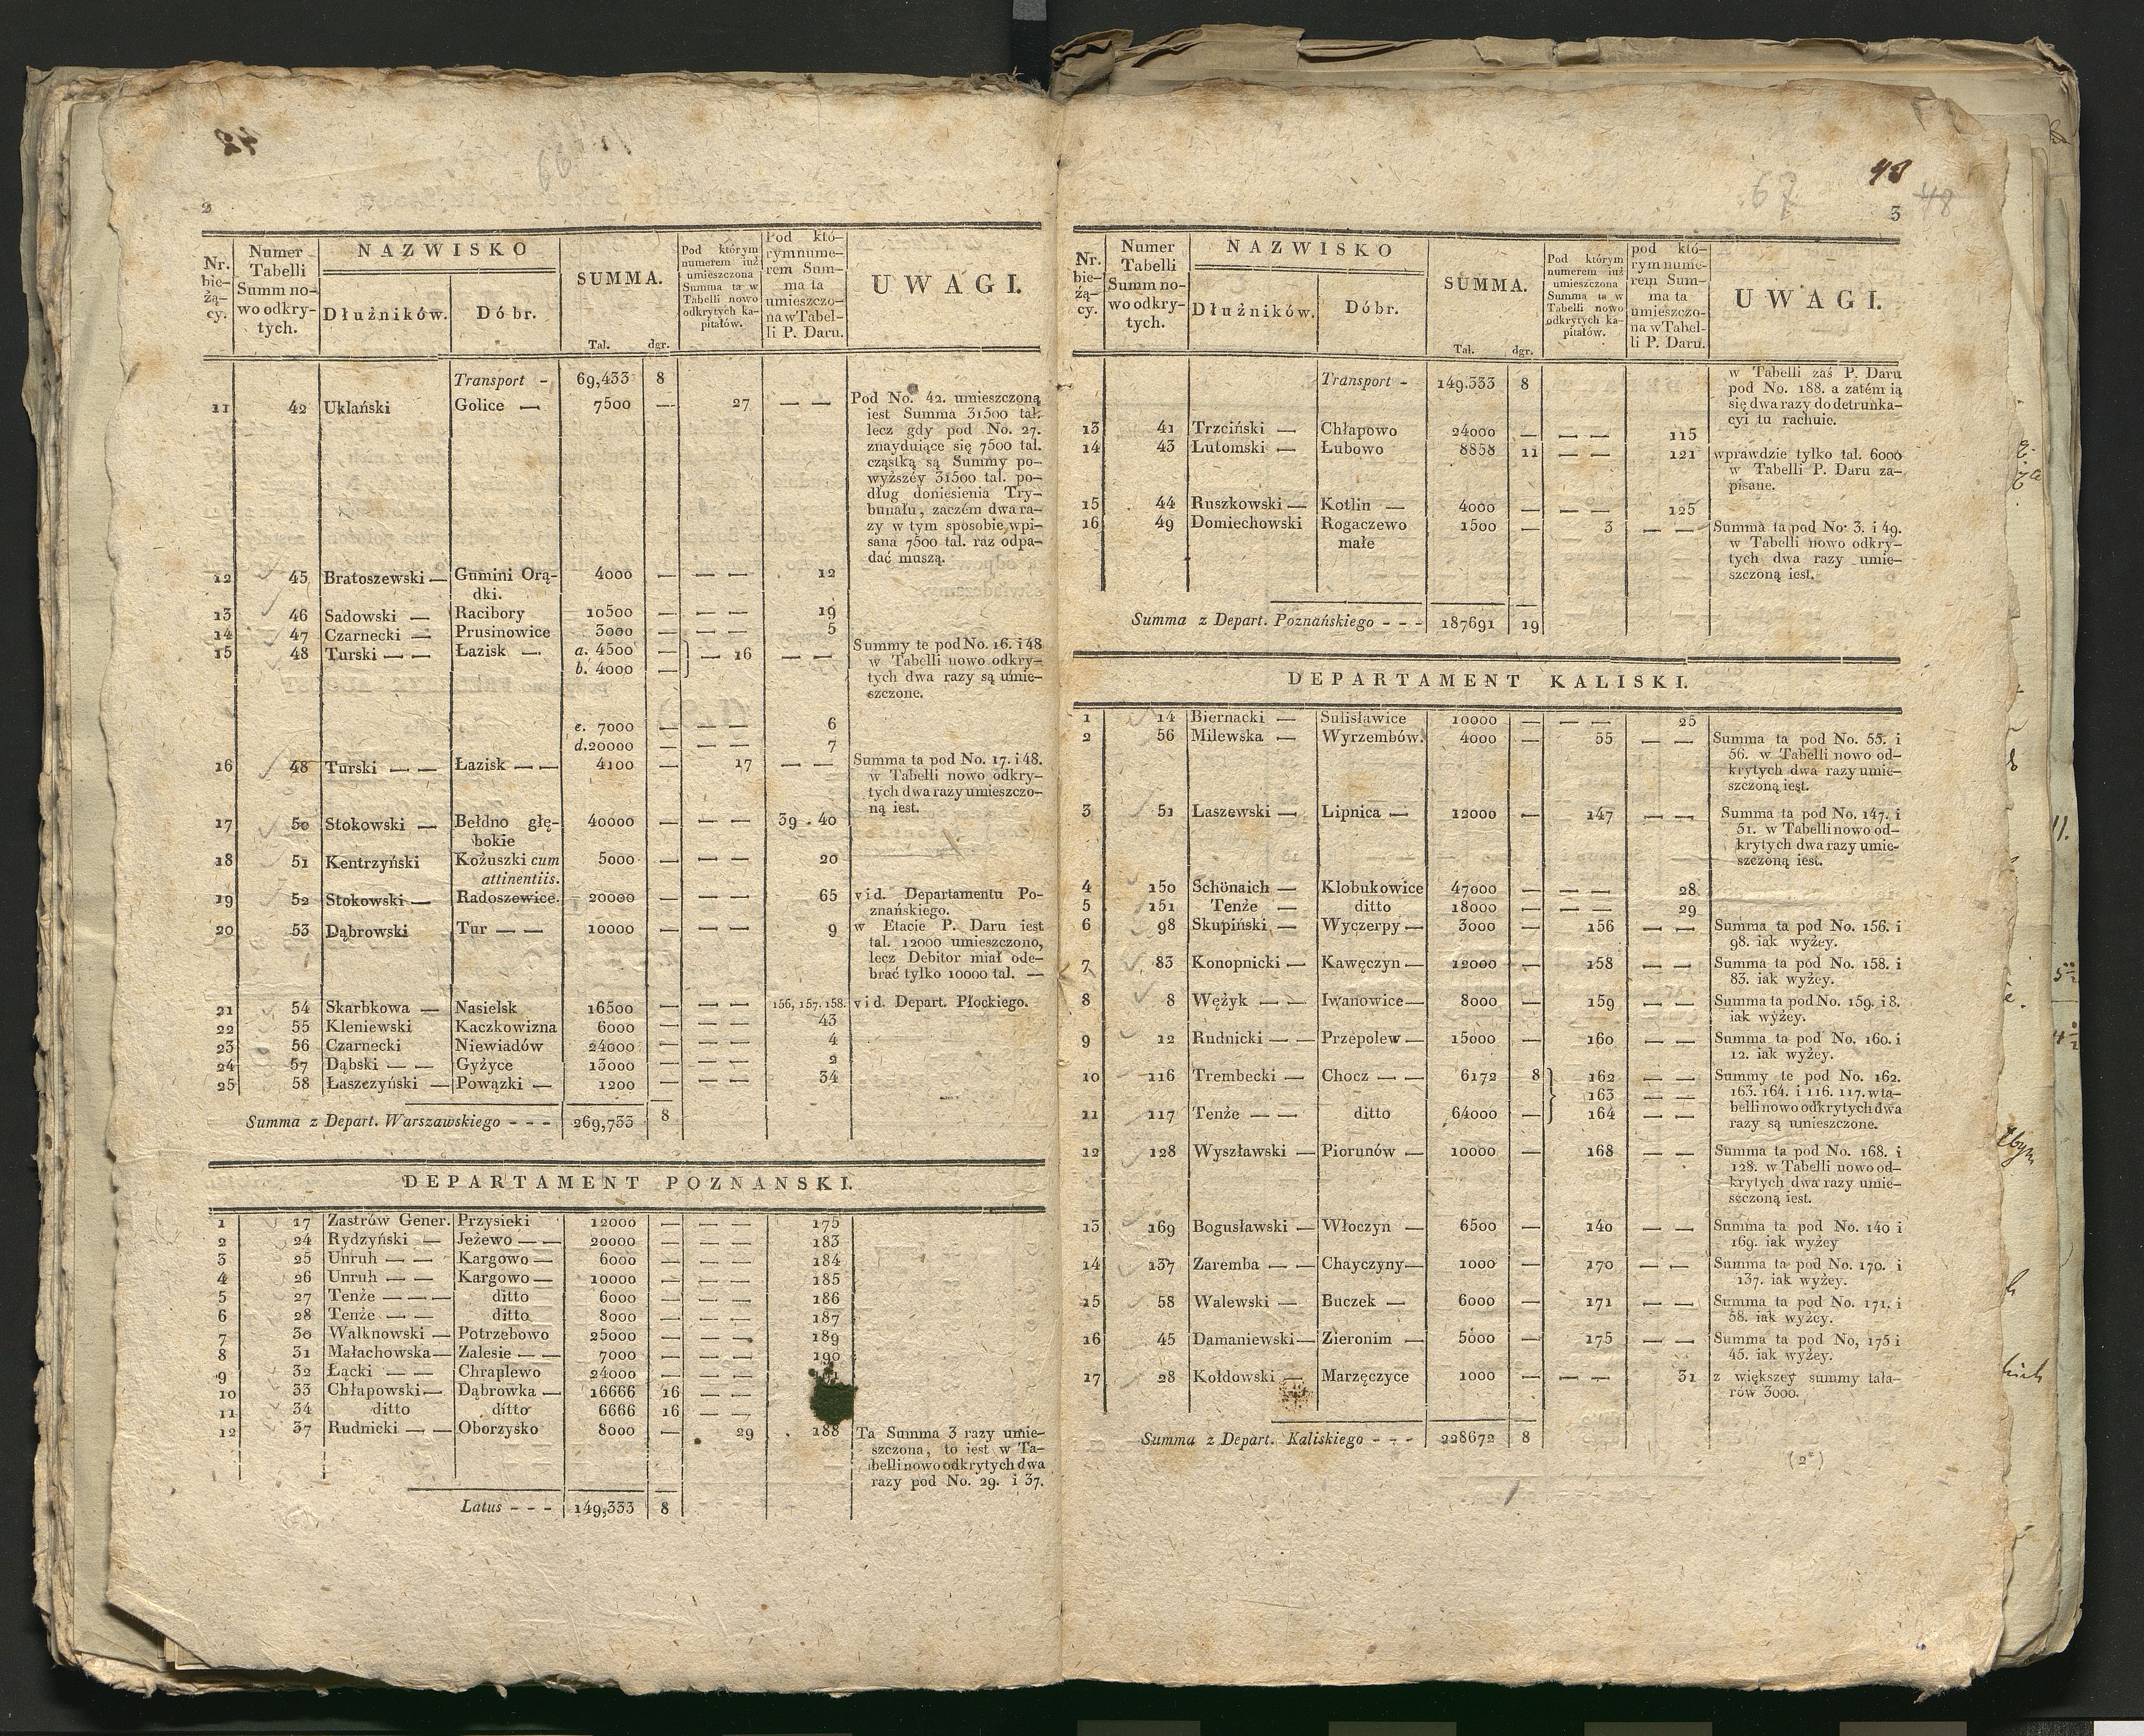 2
Nr. bie- żą- cy. | Numer Tabelli Summ no- wo odkry- tych. | NAZWISKO | SUMMA. | Pod którym numerem iuż umieszczona Summa ta w Tabelli nowo odkrytych ka- pitałów. | Pod któ- rym nume- rem Sum- ma ta umieszczo- na w Tabel- li P. Daru. | UWAGI.
Dłużników. | Dóbr.
Tal. dgr.
Transport - 69,433 8
11 42 Uklański Golice — 7500 — 27 — — Pod No. 42. umieszczoną
iest Summa 31500 tal.
lecz gdy pod No. 27.
znayduiące się 7500 tal.
cząstką są Summy po-
wyższéy 31500 tal. po-
dług doniesienia Try-
bunału, zaczém dwa ra-
zy w tym sposobie wpi-
sana 7500 tal. raz odpa-
dać muszą.
12 45 Bratoszewski — Gumini Orą- 4000 — — — 12
dki.
13 46 Sadowski — Racibory 10500 — — — 19
14 47 Czarnecki — Prusinowice 3000 — — — 5
15 48 Turski — — Łazisk — a. 4500 — } — 16 — — Summy te pod No. 16. i 48
b. 4000 — w Tabelli nowo odkry-
tych dwa razy są umie-
szczone.
c. 7000 — — — 6
d. 20000 — — — 7
16 48 Turski — — Łazisk — — 4100 — 17 — — Summa ta pod No. 17. i 48.
w Tabelli nowo odkry-
tych dwa razy umieszczo-
ną iest.
17 50 Stokowski — Bełdno głę- 40000 — — — 39 . 40
bokie
18 51 Kentrzyński Kożuszki cum 5000 — — — 20
attinentiis.
19 52 Stokowski — Radoszewice. 20000 — — — 65 vid. Departamentu Po-
znańskiego.
20 53 Dąbrowski Tur — — 10000 — — — 9 w Etacie P. Daru iest
tal. 12000 umieszczono,
lecz Debitor miał ode-
brać tylko 10000 tal. —
21 54 Skarbkowa — Nasielsk 16500 — — — 156, 157. 158. vid. Depart. Płockiego.
22 55 Kleniewski Kaczkowizna 6000 — — — 43
23 56 Czarnecki Niewiadów 24000 — — — 4
24 57 Dąbski — — Gyżyce 13000 — — — 2
25 58 Łaszczyński — Powązki — 1200 — — — 34
Summa z Depart. Warszawskiego - - - 269,733 8
DEPARTAMENT POZNANSKI.
1 17 Zastrów Gener. Przysieki 12000 — — — 175
2 24 Rydzyński — Jeżewo — — 20000 — — — 183
3 25 Unruh — — Kargowo — 6000 — — — 184
4 26 Unruh — — Kargowo — 10000 — — — 185
5 27 Tenże — — — ditto 6000 — — — 186
6 28 Tenże — — ditto 8000 — — — 187
7 30 Walknowski — Potrzebowo 25000 — — — 189
8 31 Małachowska — Zalesie — — 7000 — — — 190
9 32 Łącki — — Chraplewo 24000 — — —
10 33 Chłapowski — Dąbrowka — 16666 16 — —
11 34 ditto ditto 6666 16 — —
12 37 Rudnicki — — Oborzysko 8000 — 29 . 188 Ta Summa 3 razy umie-
szczona, to iest w Ta-
belli nowo odkrytych dwa
razy pod No. 29. i 37.
Latus - - - 149,333 8
43
67
48
3
Nr. bie- żą- cy. | Numer Tabelli Summ no- wo odkry- tych. | NAZWISKO | SUMMA. | Pod którym numerem iuż umieszczona Summa ta w Tabelli nowo odkrytych ka- pitałów. | pod któ- rym nume- rem Sum- ma ta umieszczo- na w Tabel- li P. Daru. | UWAGI.
Dłużników. | Dóbr.
Tal. dgr.
Transport - 149.333 8 w Tabelli zaś P. Daru
pod No. 188. a zatém ią
się dwa razy do detrunka-
cyi tu rachuie.
13 41 Trzciński — Chłapowo 24000 — — — 115
14 43 Lutomski — Łubowo 8858 11 — — 121 wprawdzie tylko tal. 6000
w Tabelli P. Daru za-
pisane.
15 44 Ruszkowski — Kotlin — 4000 — — — 125
16 49 Domiechowski Rogaczewo 1500 — 3 — — Summa ta pod No. 3. i 49.
małe w Tabelli nowo odkry-
tych dwa razy umie-
szczoną iest.
Summa z Depart. Poznańskiego - - - 187691 19
DEPARTAMENT KALISKI.
1 14 Biernacki — Sulisławice 10000 — — — 25
2 56 Milewska — Wyrzembów. 4000 — 55 — — Summa ta pod No. 55. i
56. w Tabelli nowo od-
krytych dwa razy umie-
szczoną iest.
3 51 Laszewski — Lipnica — 12000 — 147 — — Summa ta pod No. 147. i
51. w Tabelli nowo od-
krytych dwa razy umie-
szczoną iest.
4 150 Schönaich — Klobukowice 47000 — — — 28
5 151 Tenże — ditto 18000 — — — 29
6 98 Skupiński — Wyczerpy — 3000 — 156 — — Summa ta pod No. 156. i
98. iak wyżey.
7 83 Konopnicki — Kawęczyn — 12000 — 158 — — Summa ta pod No. 158. i
83. iak wyżey.
8 8 Wężyk — — Iwanowice — 8000 — 159 — — Summa ta pod No. 159. i 8.
iak wyżey.
9 12 Rudnicki — — Przepolew — 15000 — 160 — — Summa ta pod No. 160. i
12. iak wyżey.
10 116 Trembecki — Chocz — — 6172 8 } 162 — — Summy te pod No. 162.
163 — — 163. 164. i 116. 117. w ta-
11 117 Tenże — — ditto 64000 — 164 — — belli nowo odkrytych dwa
razy są umieszczone.
12 128 Wyszławski — Piorunów — 10000 — 168 — — Summa ta pod No. 168. i
128. w Tabelli nowo od-
krytych dwa razy umie-
szczoną iest.
13 169 Bogusławski — Włoczyn — 6500 — 140 — — Summa ta pod No. 140 i
169. iak wyżey
14 137 Zaremba — — Chayczyny — 1000 — 170 — — Summa ta pod No. 170. i
137. iak wyżey.
15 58 Walewski — Buczek — 6000 — 171 — — Summa ta pod No. 171. i
58. iak wyżey.
16 45 Damaniewski — Zieronim — 5000 — 175 — — Summa ta pod No, 175 i
45. iak wyżey.
17 28 Kołdowski — Marzęczyce 1000 — — — 31 z większey summy tala-
rów 3000.
Summa z Depart. Kaliskiego - - - 228672 8
(2*)